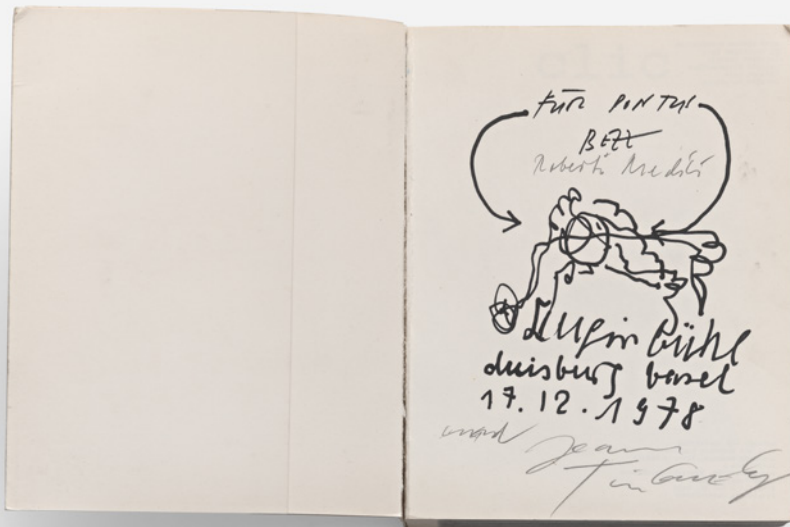 FÜR PONTUS
Roberto
Luginbühl
duisburg basel
17.12.1978
und Jean
Tinguely